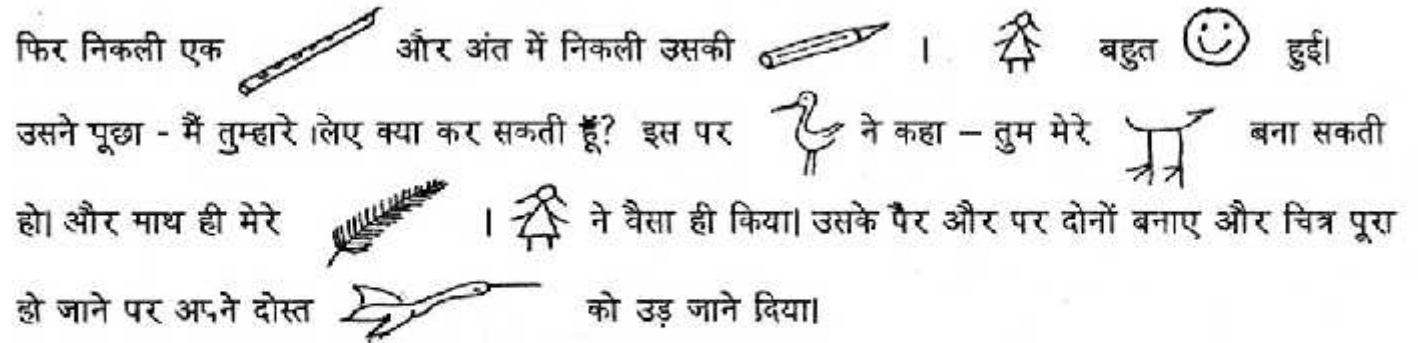 फिर निकली एक और अंत में निकली उसकी । बहुत हुई।
उसने पूछा - मैं तुम्हारे लिए क्या कर सकती हूँ? इस पर ने कहा – तुम मेरे बना सकती
हो। और माथ ही मेरे । ने वैसा ही किया। उसके पैर और पर दोनों बनाए और चित्र पूरा
हो जाने पर अपने दोस्त को उड़ जाने दिया।